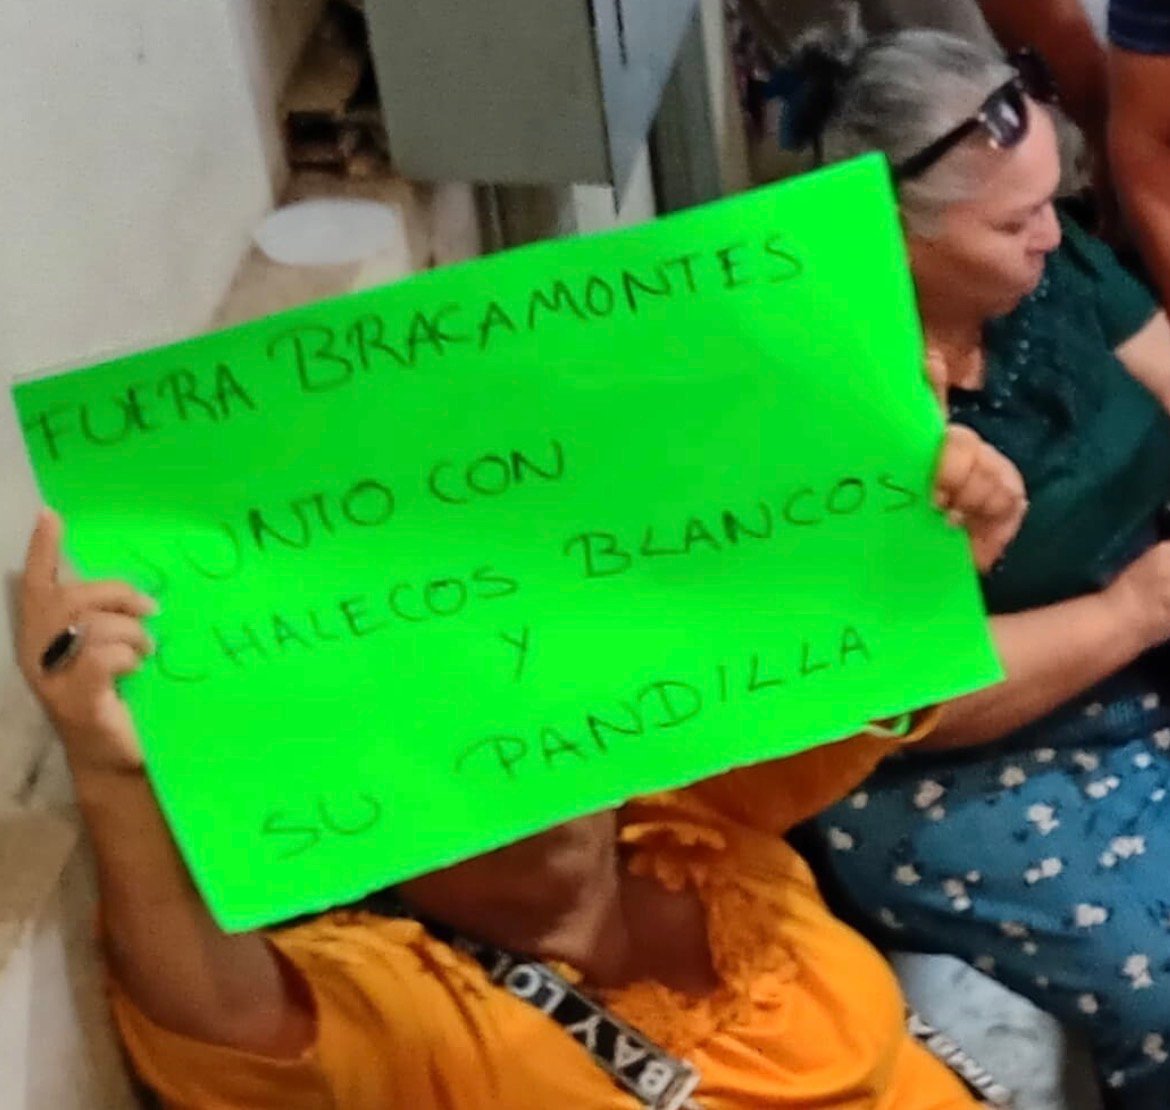 FUERA BRACAMONTES
JUNTO CON
CHALECOS BLANCOS
Y
SU PANDILLA
BAYLO